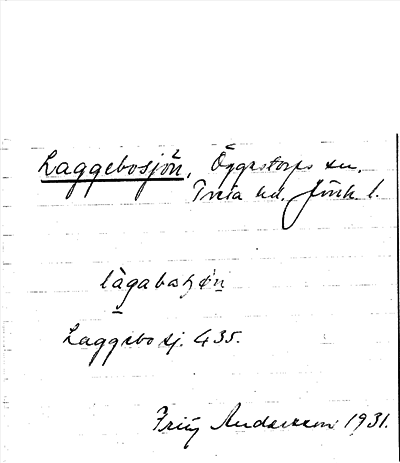 Laggebosjön, Öggestorps sn.
Tveta hd. Jönk. l.
làgabosjön
Laggebosj. 435.
Fritz Andersson 1931.